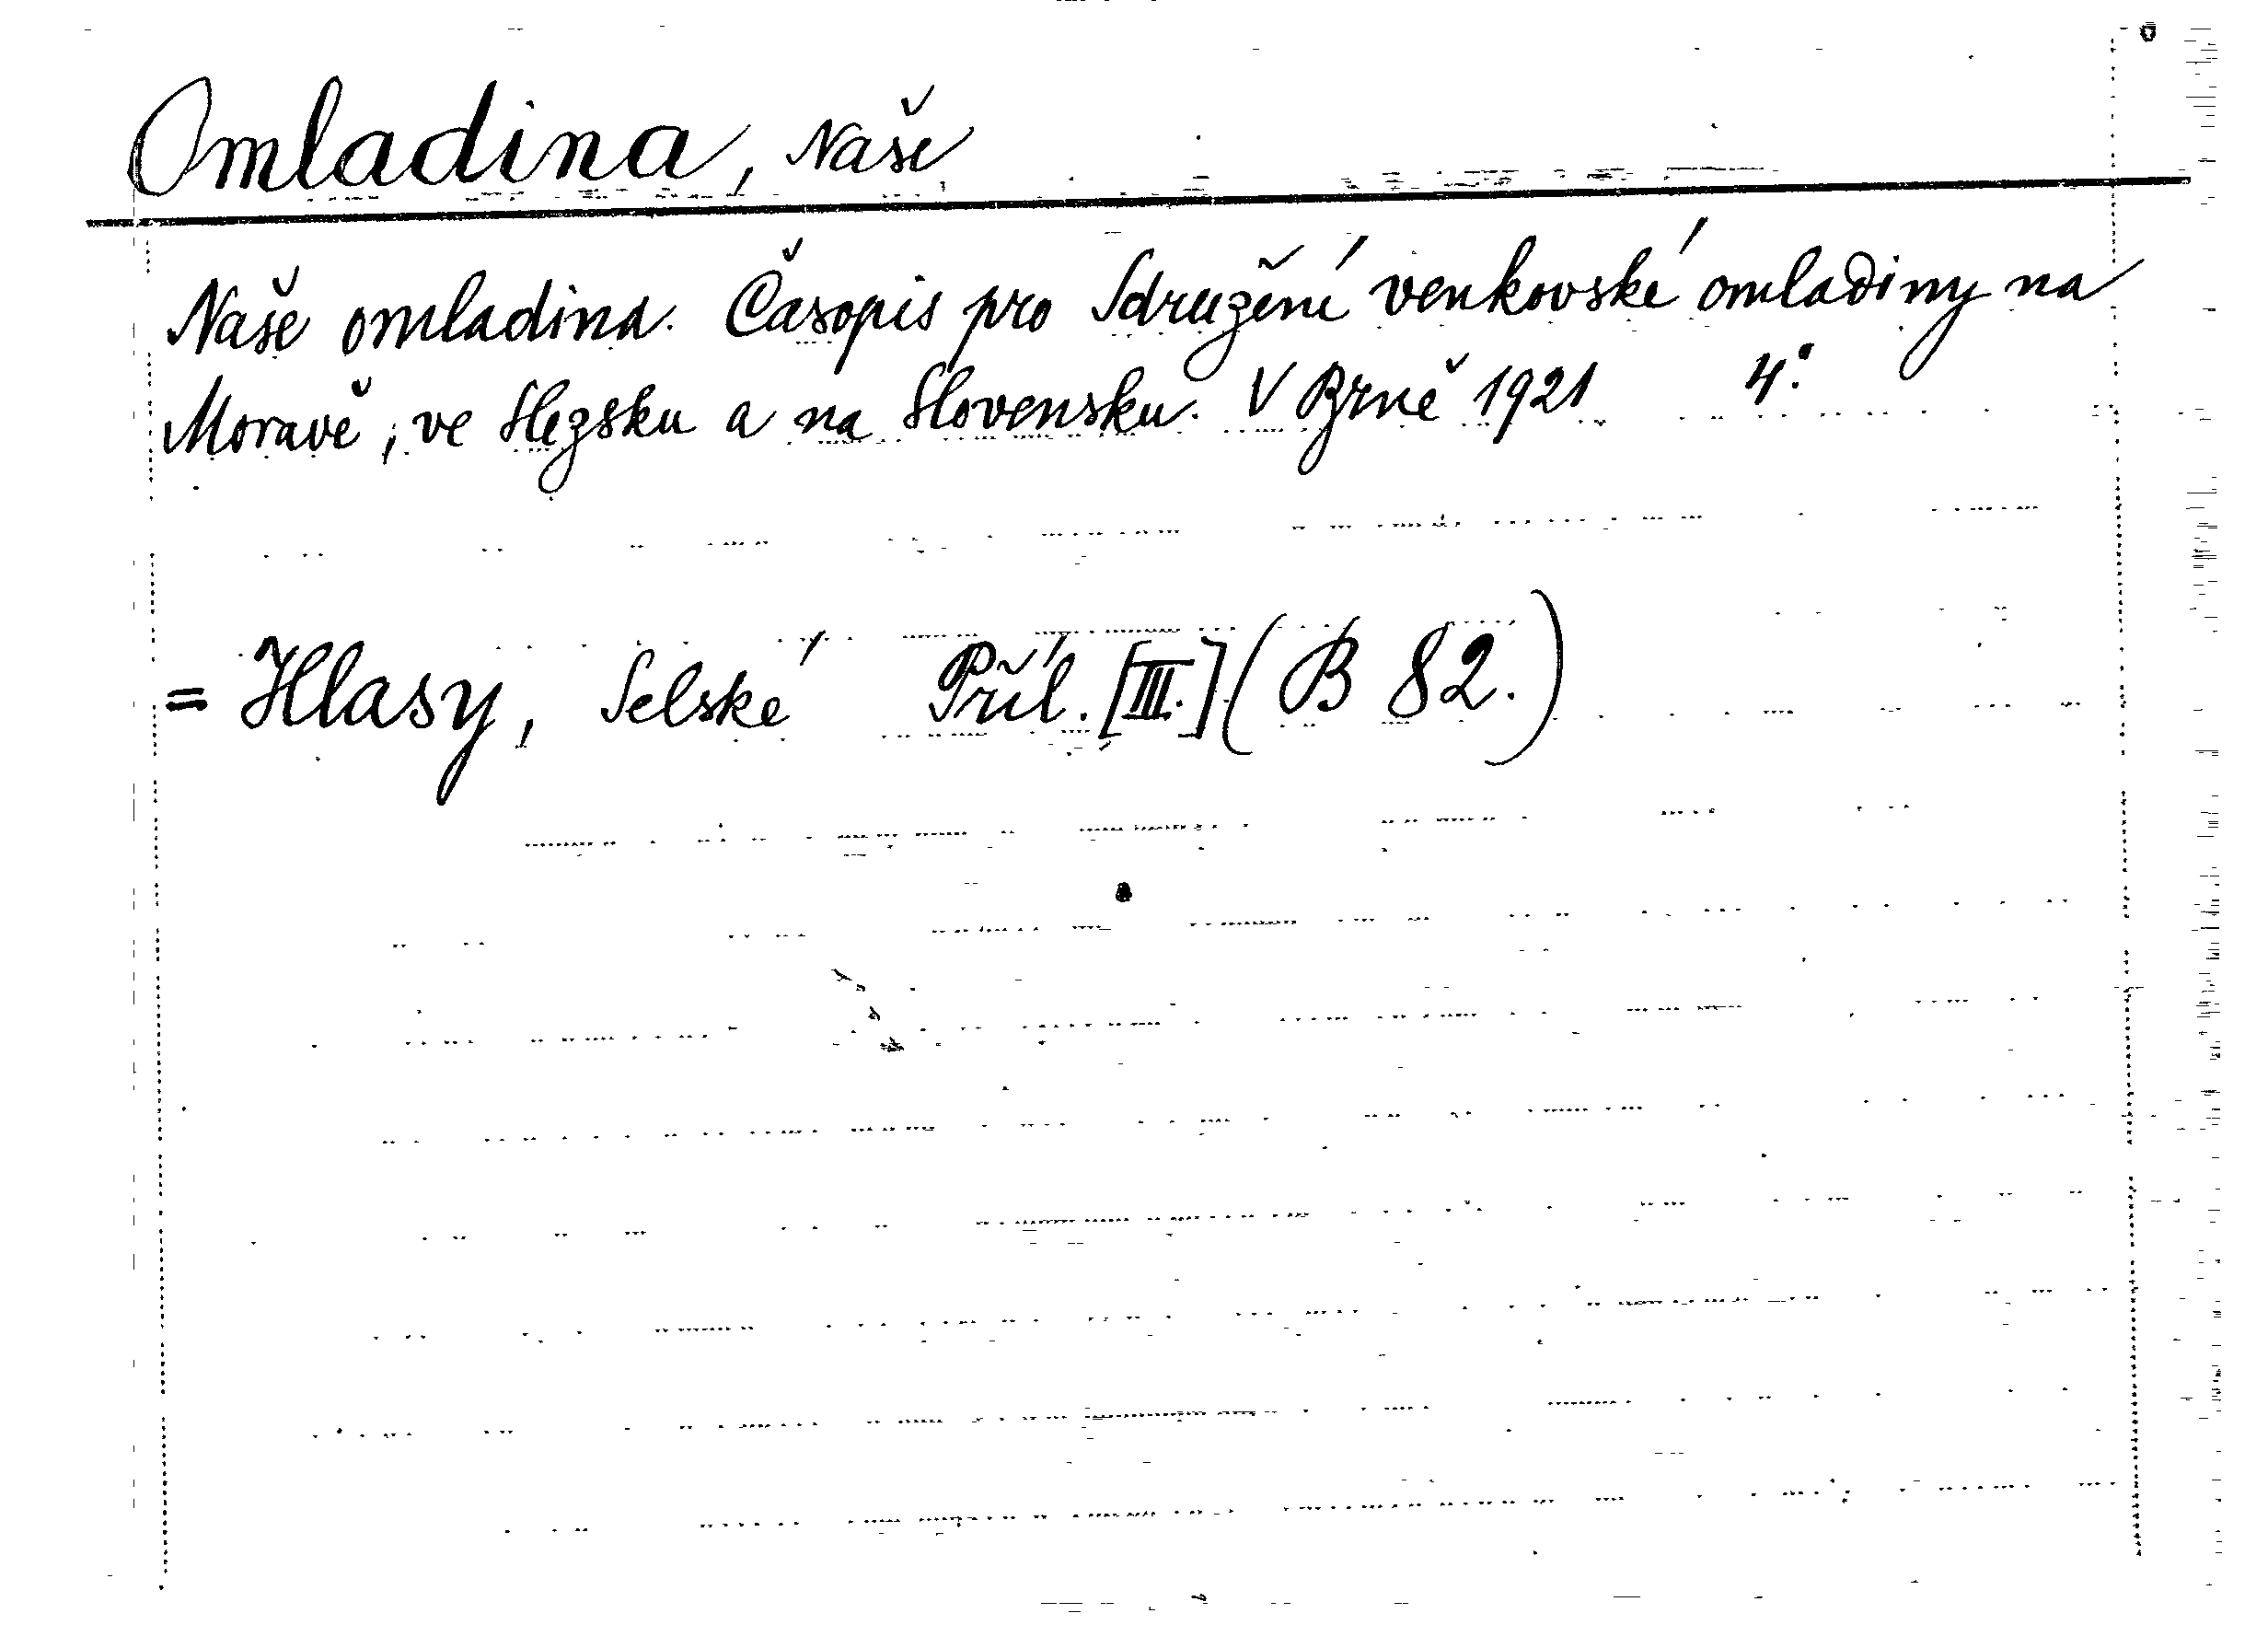 Omladina, Naše
Naše omladina. Časopis pro Sdružení venkovské omladiny na
Moravě, ve Slezsku a na Slovensku. V Brně 1921 4°.
= Hlasy, Selské Příl. [III.] (B 82.)